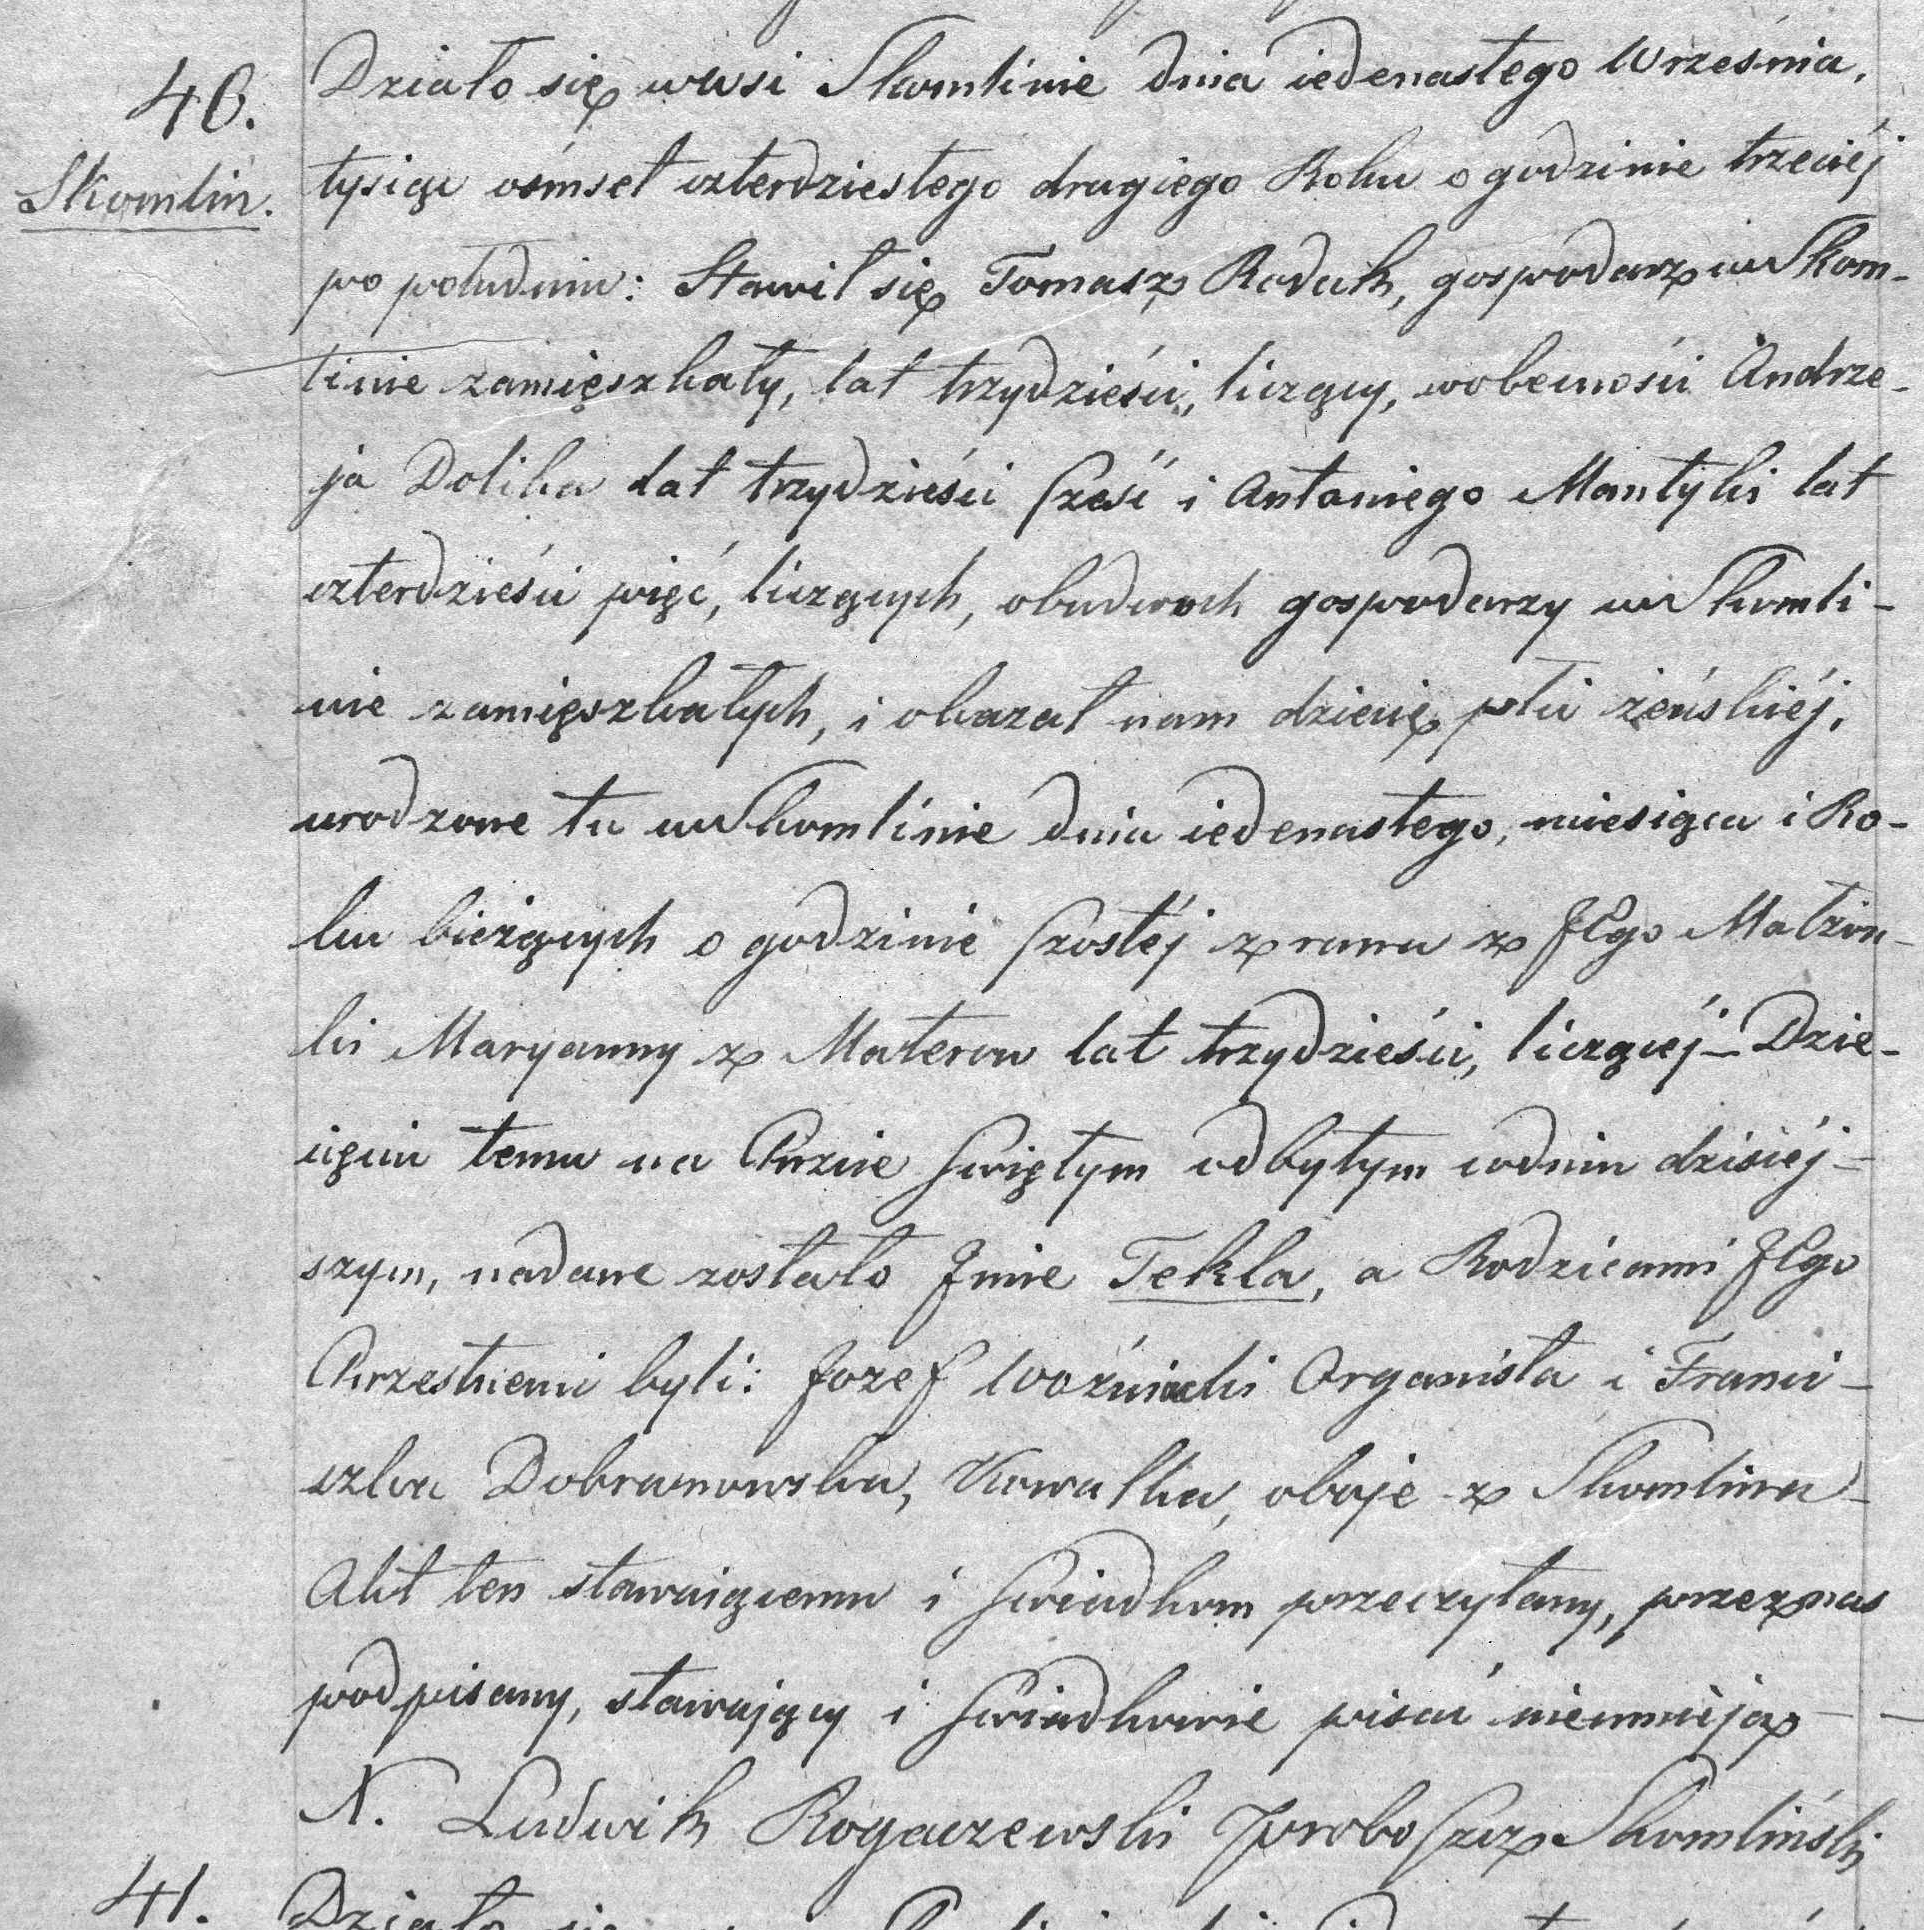 40.
Skomlin.
Działo się wwsi Skomlinie dnia iedenastego Września,
tysiąc ośmset czterdziestego drugiego Roku o godzinie trzeciéj
po południu: Stawił się Tomasz Raduch, gospodarz w Skom-
linie zamięszkały, lat trzydzieści, liczący, wobecności Andrze-
ja Dolika lat trzydzieści sześć i Antoniego Mantyki lat
czterdzieści pięć, liczących, obudwoch gospodarzy w Skomli-
nie zamięszkałych, i okazał nam dziecię płci żeńskiéj,
urodzone tu w Skomlinie dnia iedenastego, miesiąca i Ro-
ku bieżących o godzinie szostéj z rana z JEgo Małżon-
ki Maryanny z Materow lat trzydzieści, liczącej – Dzie-
cięciu temu na Chrzcie Swiętym odbytym wdniu dzisiéj-
szym, nadane zostało Jmie Tekla, a Rodzicami JEgo
Chrzestnemi byli: Jozef Woźnicki Organista i Franci-
szka Dobranowska, Kowalka, oboje z Skomlina –
Akt ten stawaiącemu i Swiadkom przeczytany, przez nas
podpisany, stawający i Swiadkowie pisać nieumieją –
X. Ludwik Rogaczewski Proboszcz Skomliński
41. Działo się